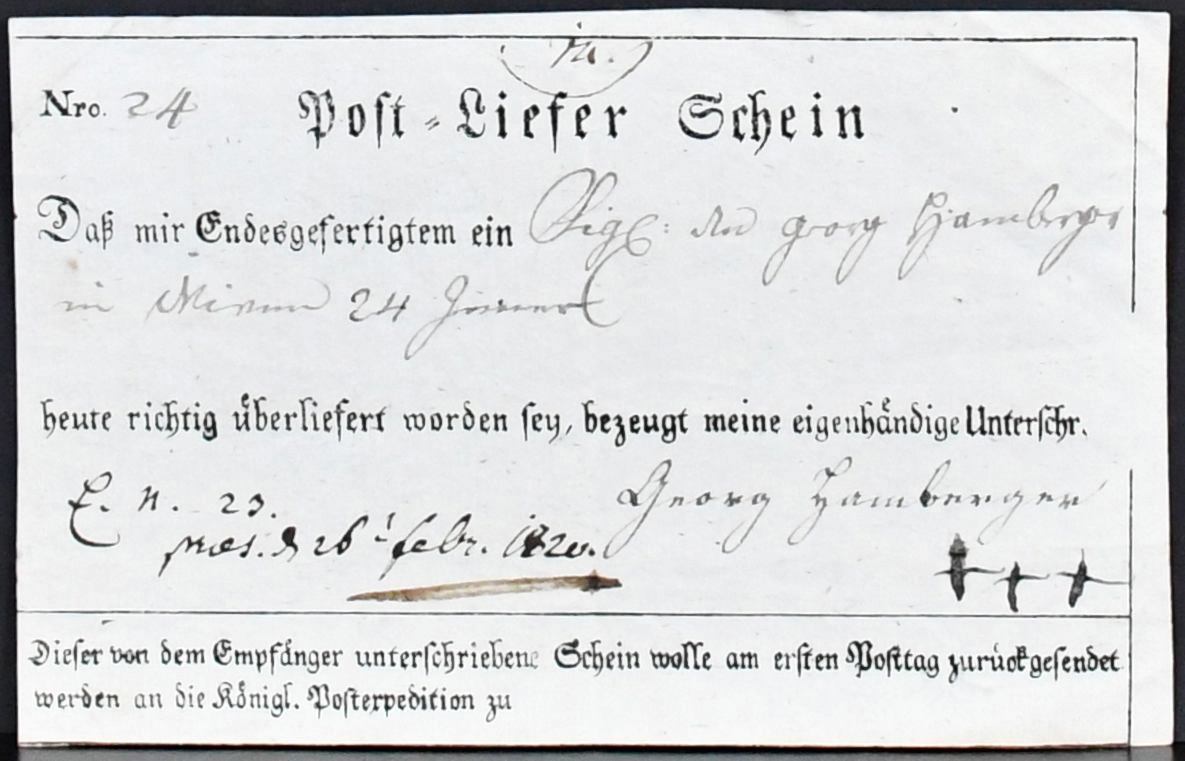 Nro. 24 Post-Liefer Schein
Daß mir Endesgefertigtem ein den georg Hamberger
in 24
heute richtig überliefert worden sey, bezeugt meine eigenhändige Unterschr.
E. N. 23. Georg Hamberger
præs. d 26t febr. 1820. +++
Dieser von dem Empfänger unterschriebene Schein wolle am ersten Posttag zurückgesendet
werden an die Königl. Postexpedition zu